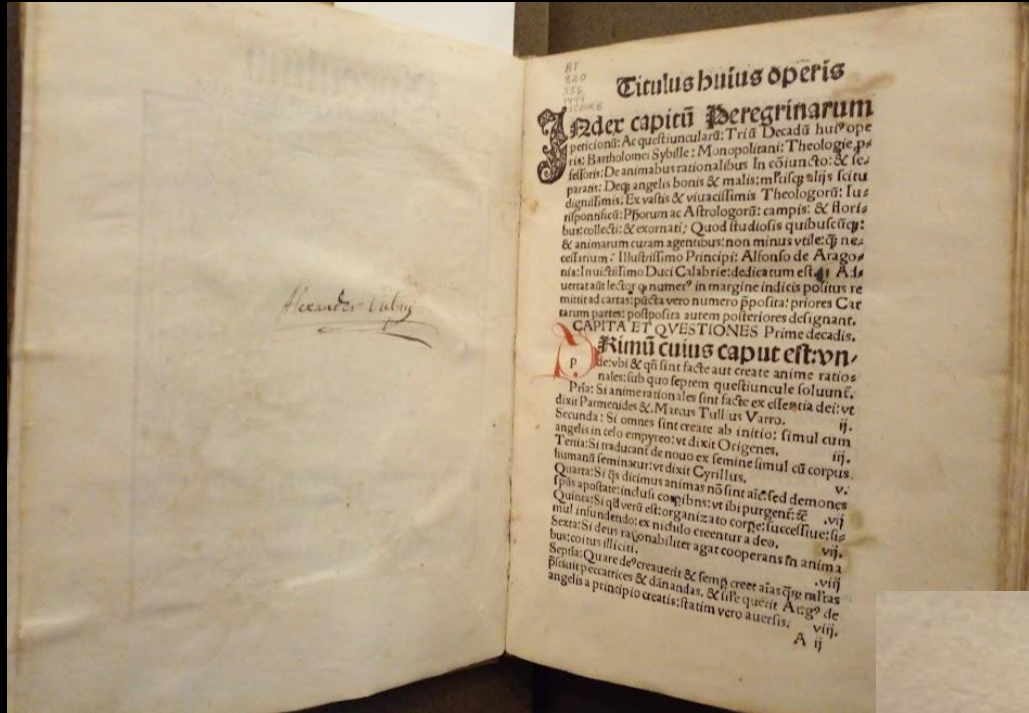 Alexander
BT
820
S56
1499
Titulus huius operis
INdex capitū Peregrinarum
peticionū: Ac questiuncularū: Triū Decadū huiꝰ ope
ris: Bartholomei Sybille: Monopolitani: Theologie
fessoris: De animabus rationalibus In cōiuncto: & se⸗
paratis: Deqꝫ angelis bonis & malis: alijs scitu
dignissimis: Ex vastis & viuacissimis Theologorū: Iu⸗
rispontificū: Phorum ac Astrologorū: campis: & flori⸗
bus: collecti: & exornati: Quod studiosis quibuscūqꝫ:
& animarum curam agentibus: non minus vtile: ꝙ̄ ne⸗
cessarium: Illustrissimo Principi: Alfonso de Arago⸗
nia: Inuictissimo Duci Calabrie: dedicatum est Ad⸗
uertat aūt lector ꝙ numerꝰ in margine indicis positus re
mittit ad cartas: pūcta vero numero p̄posita: priores Car
tarum partes: postposita autem posteriores designant.
CAPITA ET QVESTIONES Prime decadis.
PRimū cuius caput est: vn⸗
p
de: vbi & qn̄ sint facte aut create anime ratio⸗
nales: sub quo septem questiuncule soluunt̄.
Pria: Si anime rationales sint facte ex essentia dei: vt
dixit Parmenides &. Marcus Tullius Varro. ij.
Secunda: Si omnes sint create ab initio: simul cum
angelis in celo empyreo: vt dixit Origenes. iij.
Tertia: Si traducant̄ de nouo ex semine simul cū corpus
humanū seminatur: vt dixit Cyrillus. v.
Quarta: Si qs dicimus animas nō sint aīe: sed demones
spūs apostate: inclusi vt ibi purgent̄: .vij
Quinta: Si qd verū est: organizato corpe: successiue: si⸗
mul infundendo: ex nichilo creentur a deo. vij.
Sexta: Si deus rationabiliter agat cooperans in anima
bus: coitus illiciti. .viij
Septīa: Quare deꝰ creauerit & semp creet aīas
p̄sciuit peccatrices & dānandas. & sil'e querit Augꝰ de
angelis a principio creatis: statim vero auersis. viij.
A ij